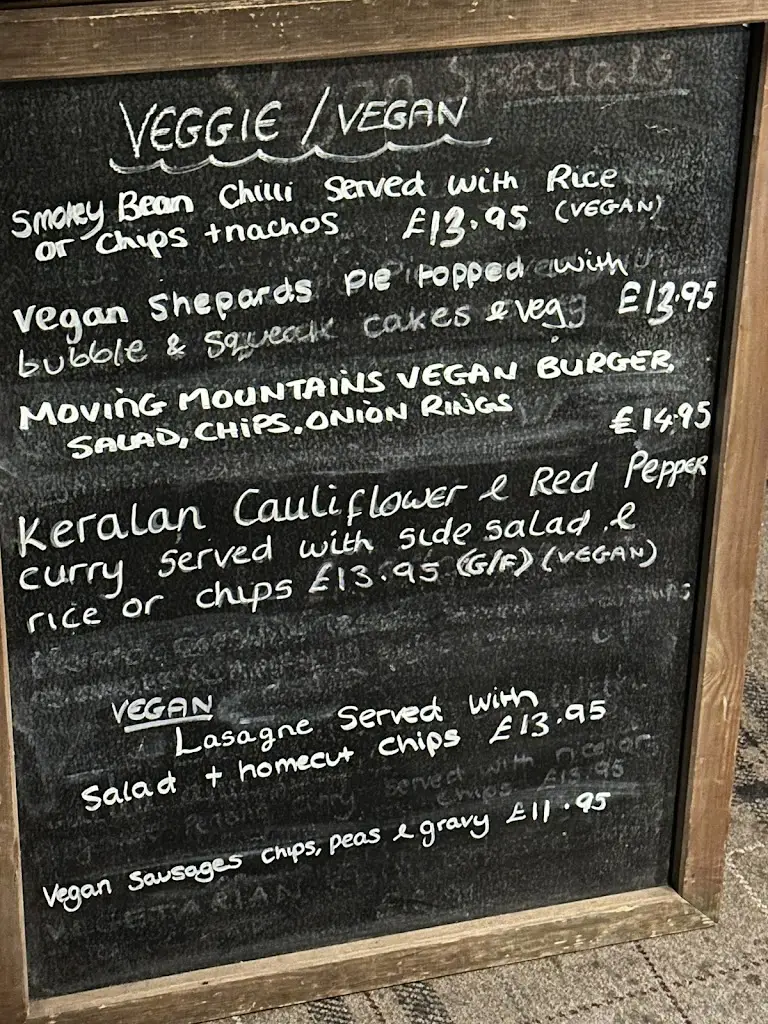 Vegan Specials
VEGGIE / VEGAN
Smokey Bean Chilli Served with Rice
or Chips + nachos £13.95 (VEGAN)
Vegan Shepards pie topped with
bubble & Squeak cakes & veg £13.95
MOVING MOUNTAINS VEGAN BURGER,
SALAD, CHIPS, ONION RINGS
£14.95
Keralan Cauliflower & Red Pepper
curry served with side salad &
rice or chips £13.95 (G/F) (VEGAN)
VEGAN
Lasagne Served with
Salad + homecut chips £13.95
served with rice or
chips £13.95
Vegan Sausages chips, peas & gravy £11.95
VEGETARIAN